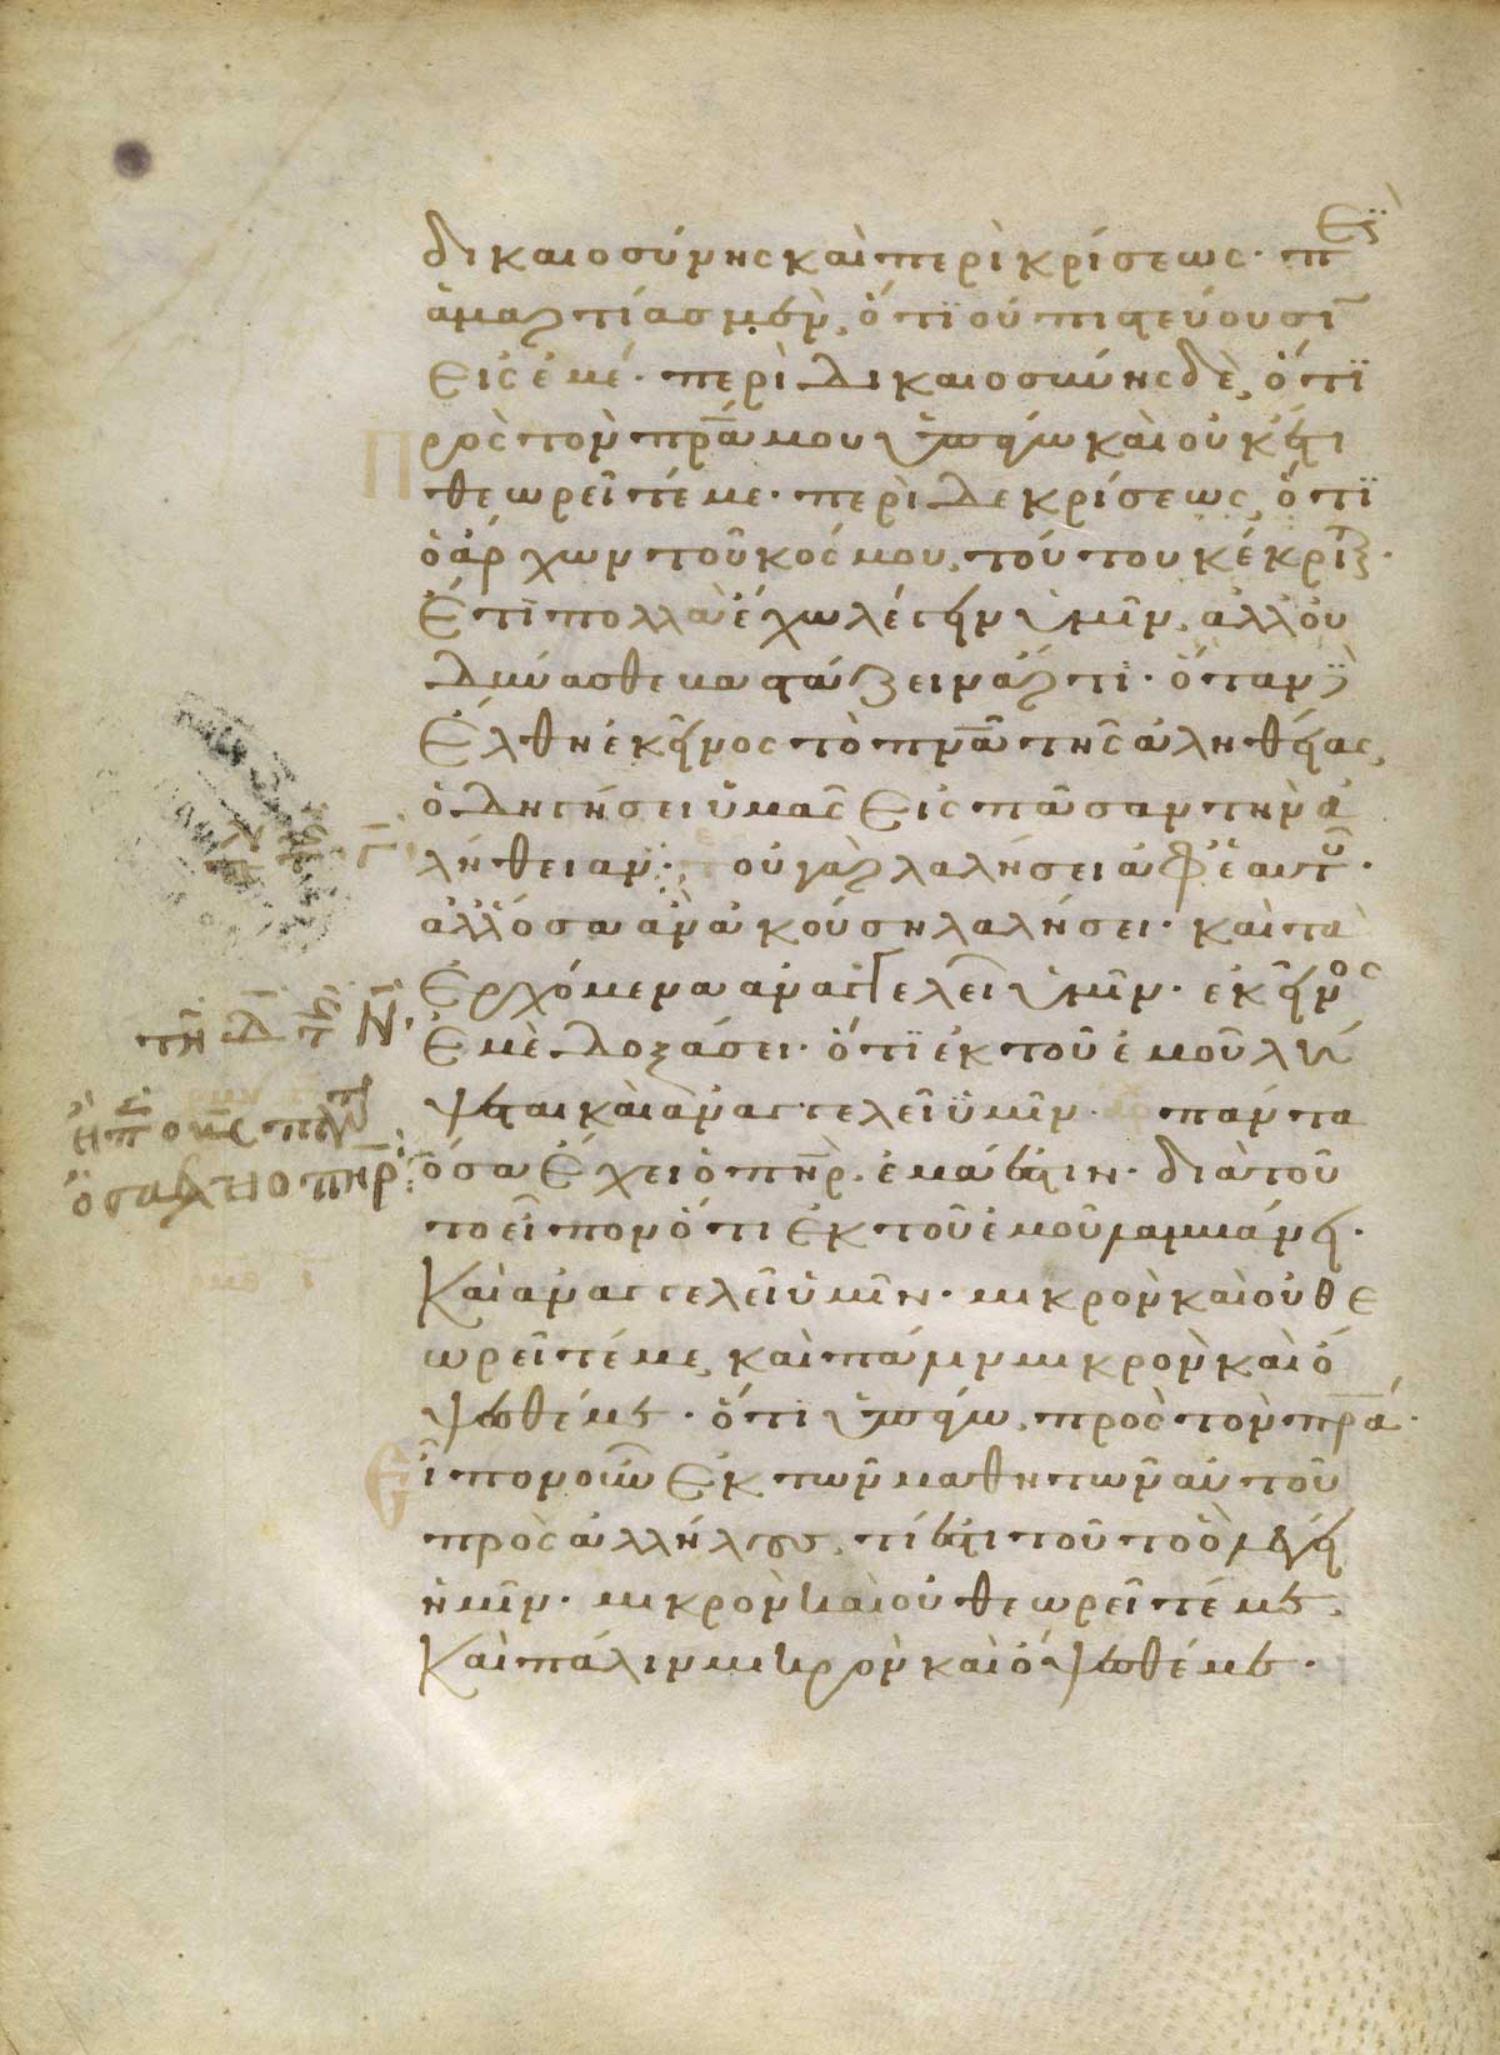 δικαιοσύνης καὶ περὶ κρίσεως· π
ἁμαρτίας μέν, ὅτϊ οὐ πιστεύουσι
εἰς ἐμέ· περὶ δικαιοσύνης δὲ, ὅτϊ
Πρὸς τὸν πρ̅α μου ὑπάγω καὶ οὐκ έτι
θεωρεῖτέ με· περὶ δε κρίσεως, ὅτϊ
ὁ ἄρχων τοῦ κόσμου τούτου κέκριται·
Ἔτι πολλὰ ἔχω λέγειν ὑμῖν, ἀλλ' οὐ
δύνασθε βαστάζειν ἄρτι· ὅταν
Ἔλθη ἐκεῖνος τὸ πν̅α τῆς ἀληθείας,
ὁδηγήσει ὑμᾶς εἰς πᾶσαν τὴν ἀ
λήθειαν· οὐ γὰρ λαλήσει ἀφ' ἑαυτοῦ·
ἀλλ' ὅσα ἂν ἀκούση λαλήσει· καὶ τὰ
Ἐρχόμενα ἀναγγελεῖ ὑμῖν· ἐκεῖνος
Ἐμὲ δοξάσει· ὅτϊ ἐκ τοῦ ἐμοῦ λή
ψεται καὶ ἀναγγελεῖ ὑμῖν· πάντα
ὅσα ἔχει ὁ πη̅ρ. ἐμά ἐστιν· διὰ τοῦ
το εἶπον ὅτι ἐκ τοῦ ἐμοῦ λαμβάνει·
Καὶ ἀναγγελεῖ ὑμῖν· μικρὸν καὶ οὐ θε
ωρεῖτέ με, καὶ πάλιν μικρὸν καὶ ὄ
ψεσθέ με· ὅτι ὑπάγω πρὸς τὸν πρ̅α·
Εἶπον οὖν ἐκ τῶν μαθητῶν αὐτοῦ
πρὸς ἀλλήλους, τί ἐστι τοῦτο ὃ λέγει
ἡμῖν· μικρὸν καὶ οὐ θεωρεῖτέ με,
Καὶ πάλιν μικρὸν καὶ ὄψεσθέ με·
ὅσα ἔχει ὁ πη̅ρ